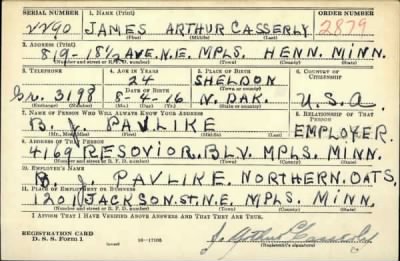 SERIAL NUMBER 1. NAME (Print) ORDER NUMBER
2290 JAMES ARTHUR CASSERLY 2879
(First) (Middle) (Last)
2. ADDRESS (Print)
819-18½ AVE.N.E. MPLS. HENN. MINN.
(Number and street or R. F. D. number) (Town) (County) (State)
3. TELEPHONE 4. AGE IN YEARS 5. PLACE OF BIRTH 6. COUNTRY OF CITIZENSHIP
24 SHELDON
GR. 3198 DATE OF BIRTH (Town or county)
8-6-16 N. DAK. U.S.A.
(Exchange) (Number) (Mo.) (Day) (Yr.) (State or country)
7. NAME OF PERSON WHO WILL ALWAYS KNOW YOUR ADDRESS 8. RELATIONSHIP OF THAT PERSON
B. J. PAVLIKE EMPLOYER
(Mr., Mrs., Miss) (First) (Middle) (Last)
9. ADDRESS OF THAT PERSON
4169 RESOVIOR.BLV. MPLS. MINN.
(Number and street or R. F. D. number) (Town) (County) (State)
10. EMPLOYER'S NAME
B. J. PAVLIKE NORTHERN.OATS.
11. PLACE OF EMPLOYMENT OR BUSINESS
1201 JACKSON.ST.N.E. MPLS. MINN.
(Number and street or R. F. D. number) (Town) (County) (State)
I AFFIRM THAT I HAVE VERIFIED ABOVE ANSWERS AND THAT THEY ARE TRUE.
REGISTRATION CARD
D. S. S. Form 1 16-17105 J. Arthur Casserly
(Registrant's signature)